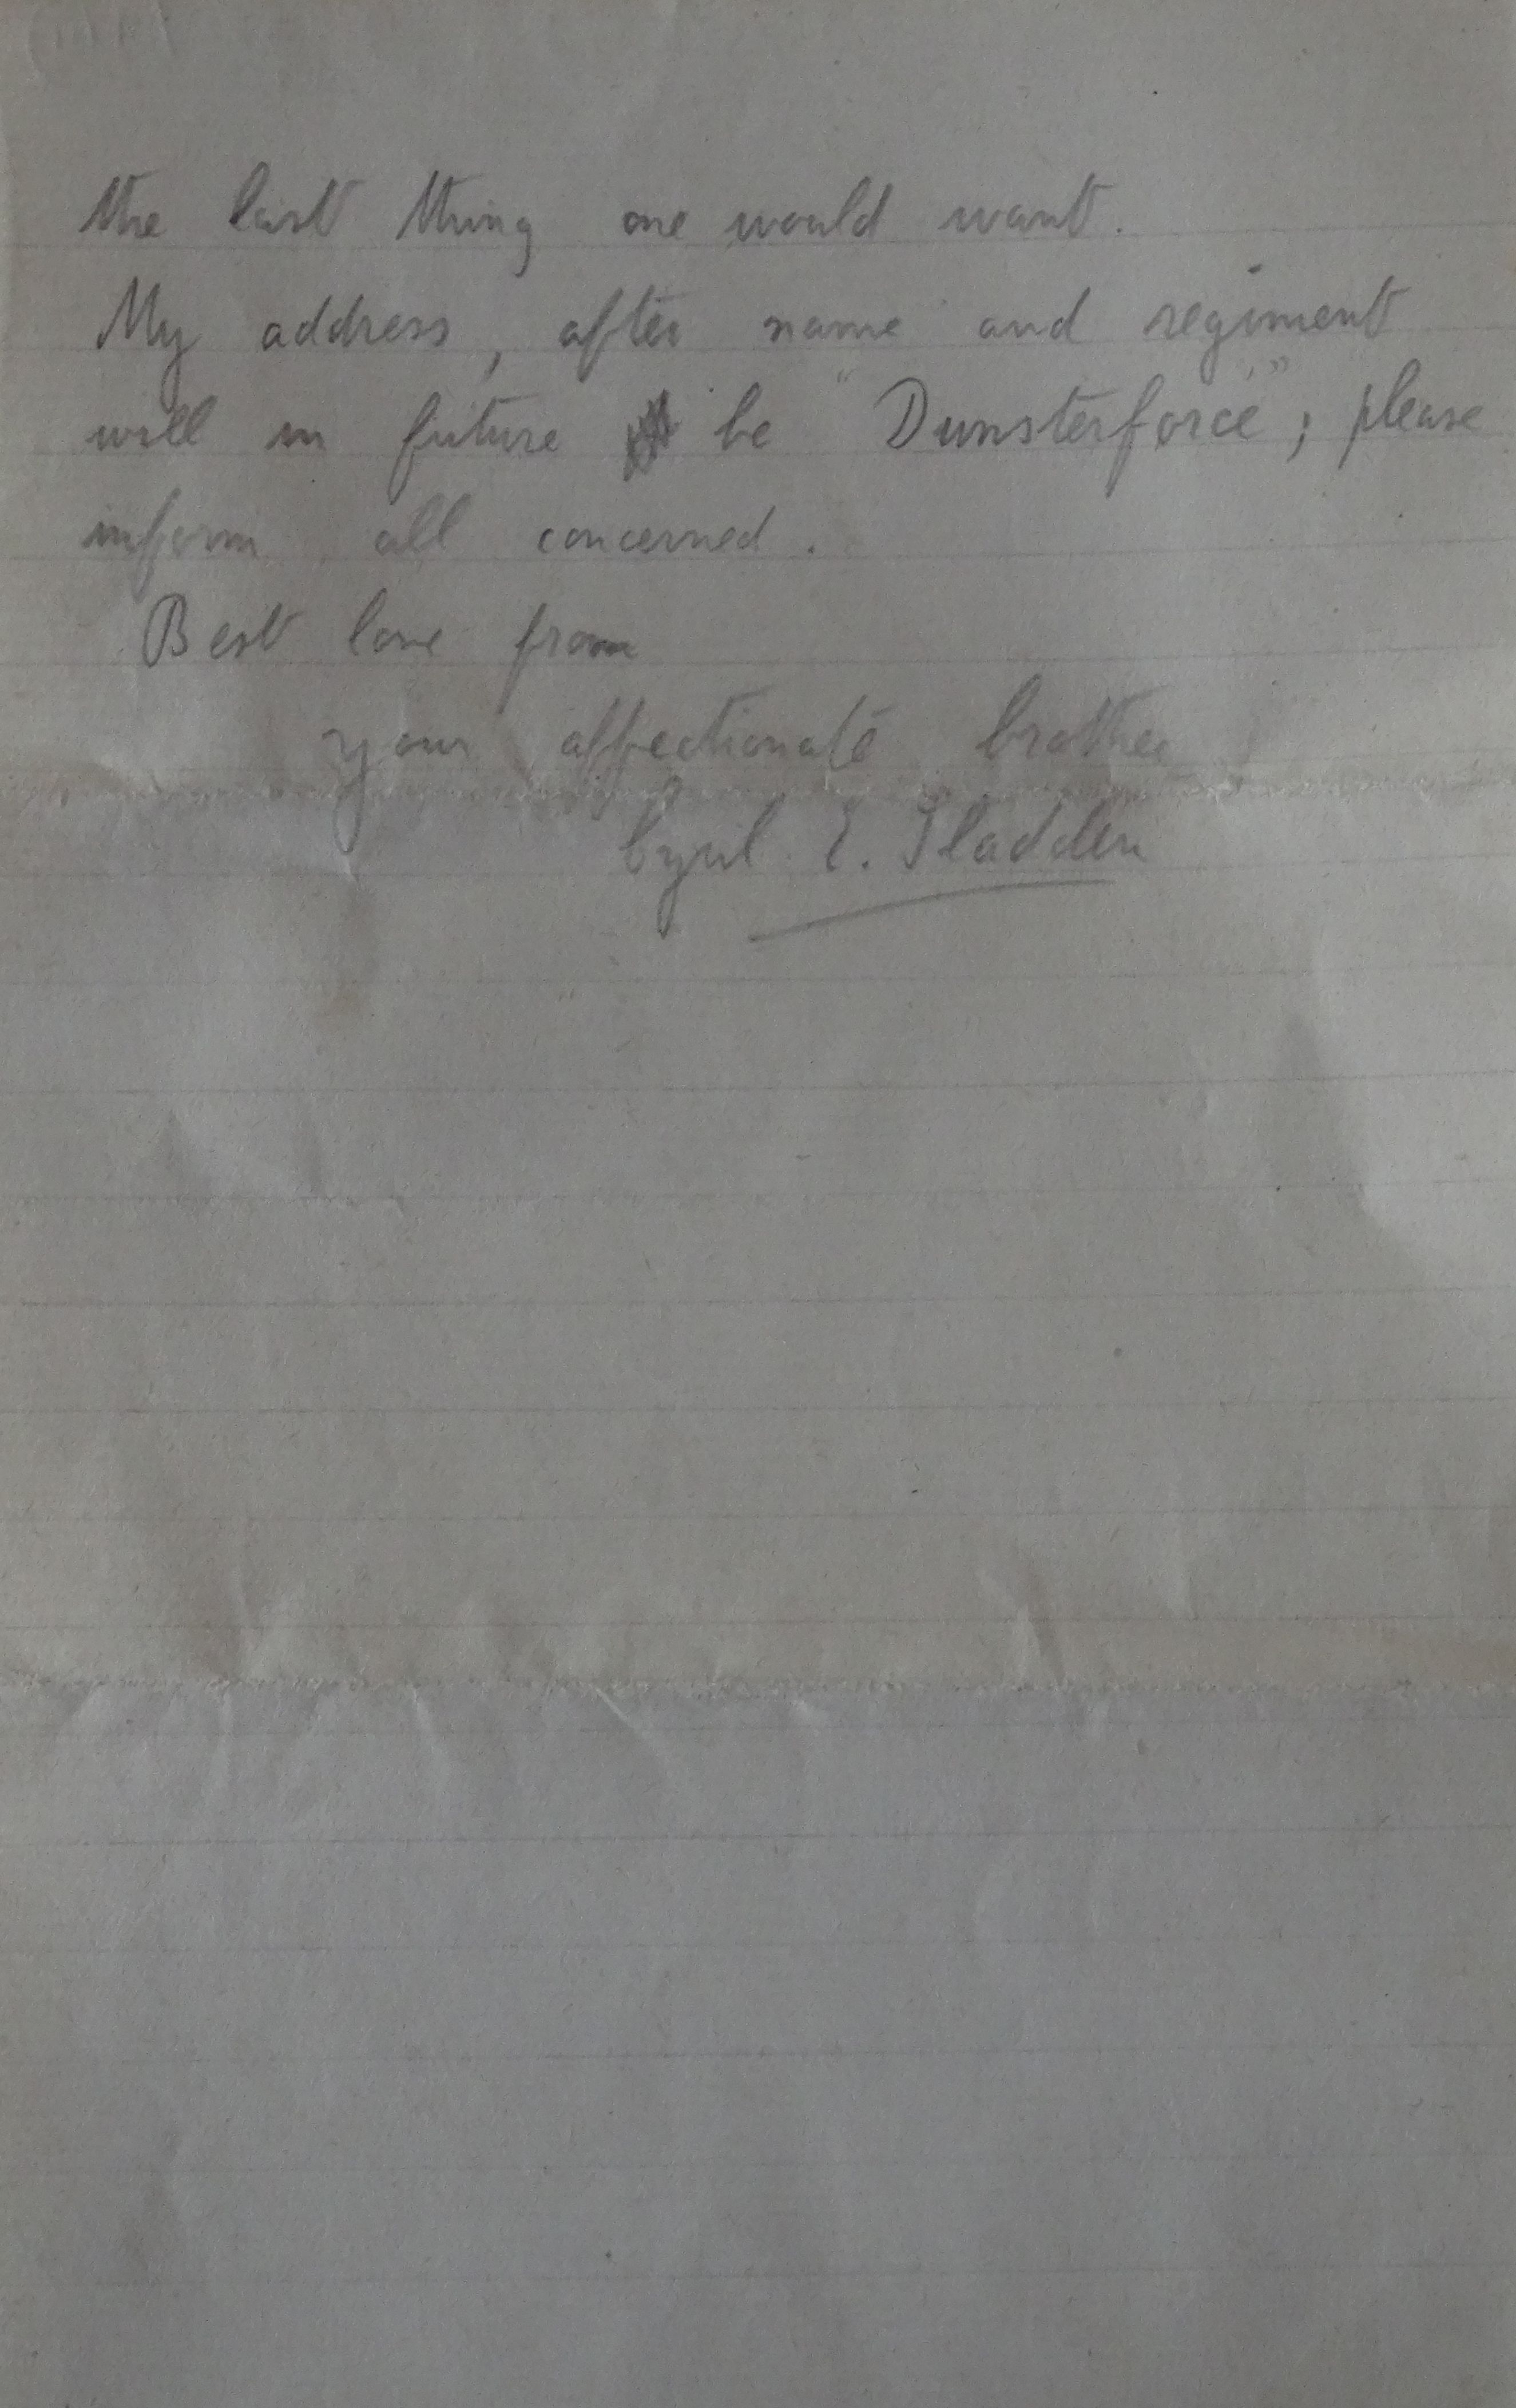 the last thing one would want.
My address, after name and regiment
will in future be "Dunsterforce"; please
inform all concerned.
Best love from
your affectionate brother
Cyril E. Sladden